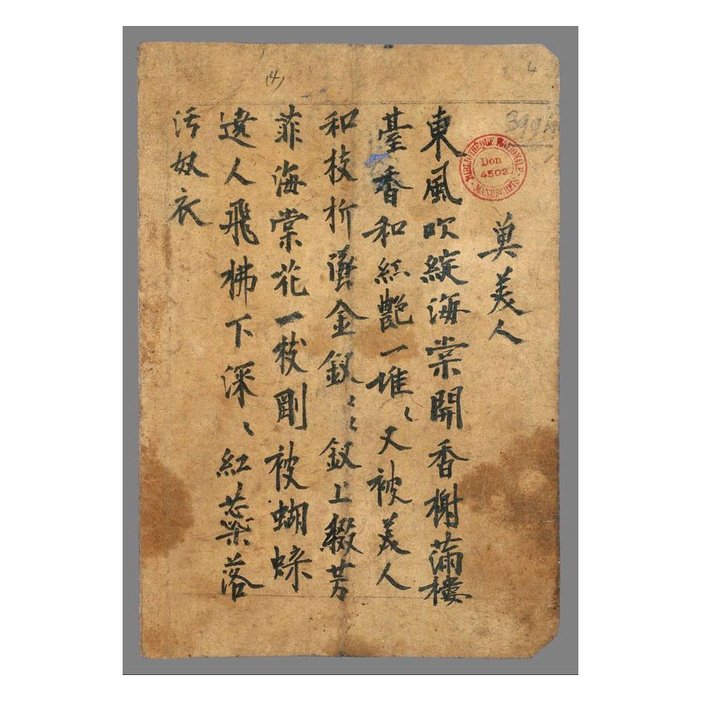 (4)
4
BIBLIOTHÈQUE NATIONALE
Don
4502
MANUSCRITS
美人
東風吹綻海棠開香榭滿樓
臺香和紅艷一堆〻又被美人
和枝折墜金釵〻〻釵上綴芳
菲海棠花一枝剛被蝴蝶
遶人飛拂下深〻紅蕊落
污奴衣